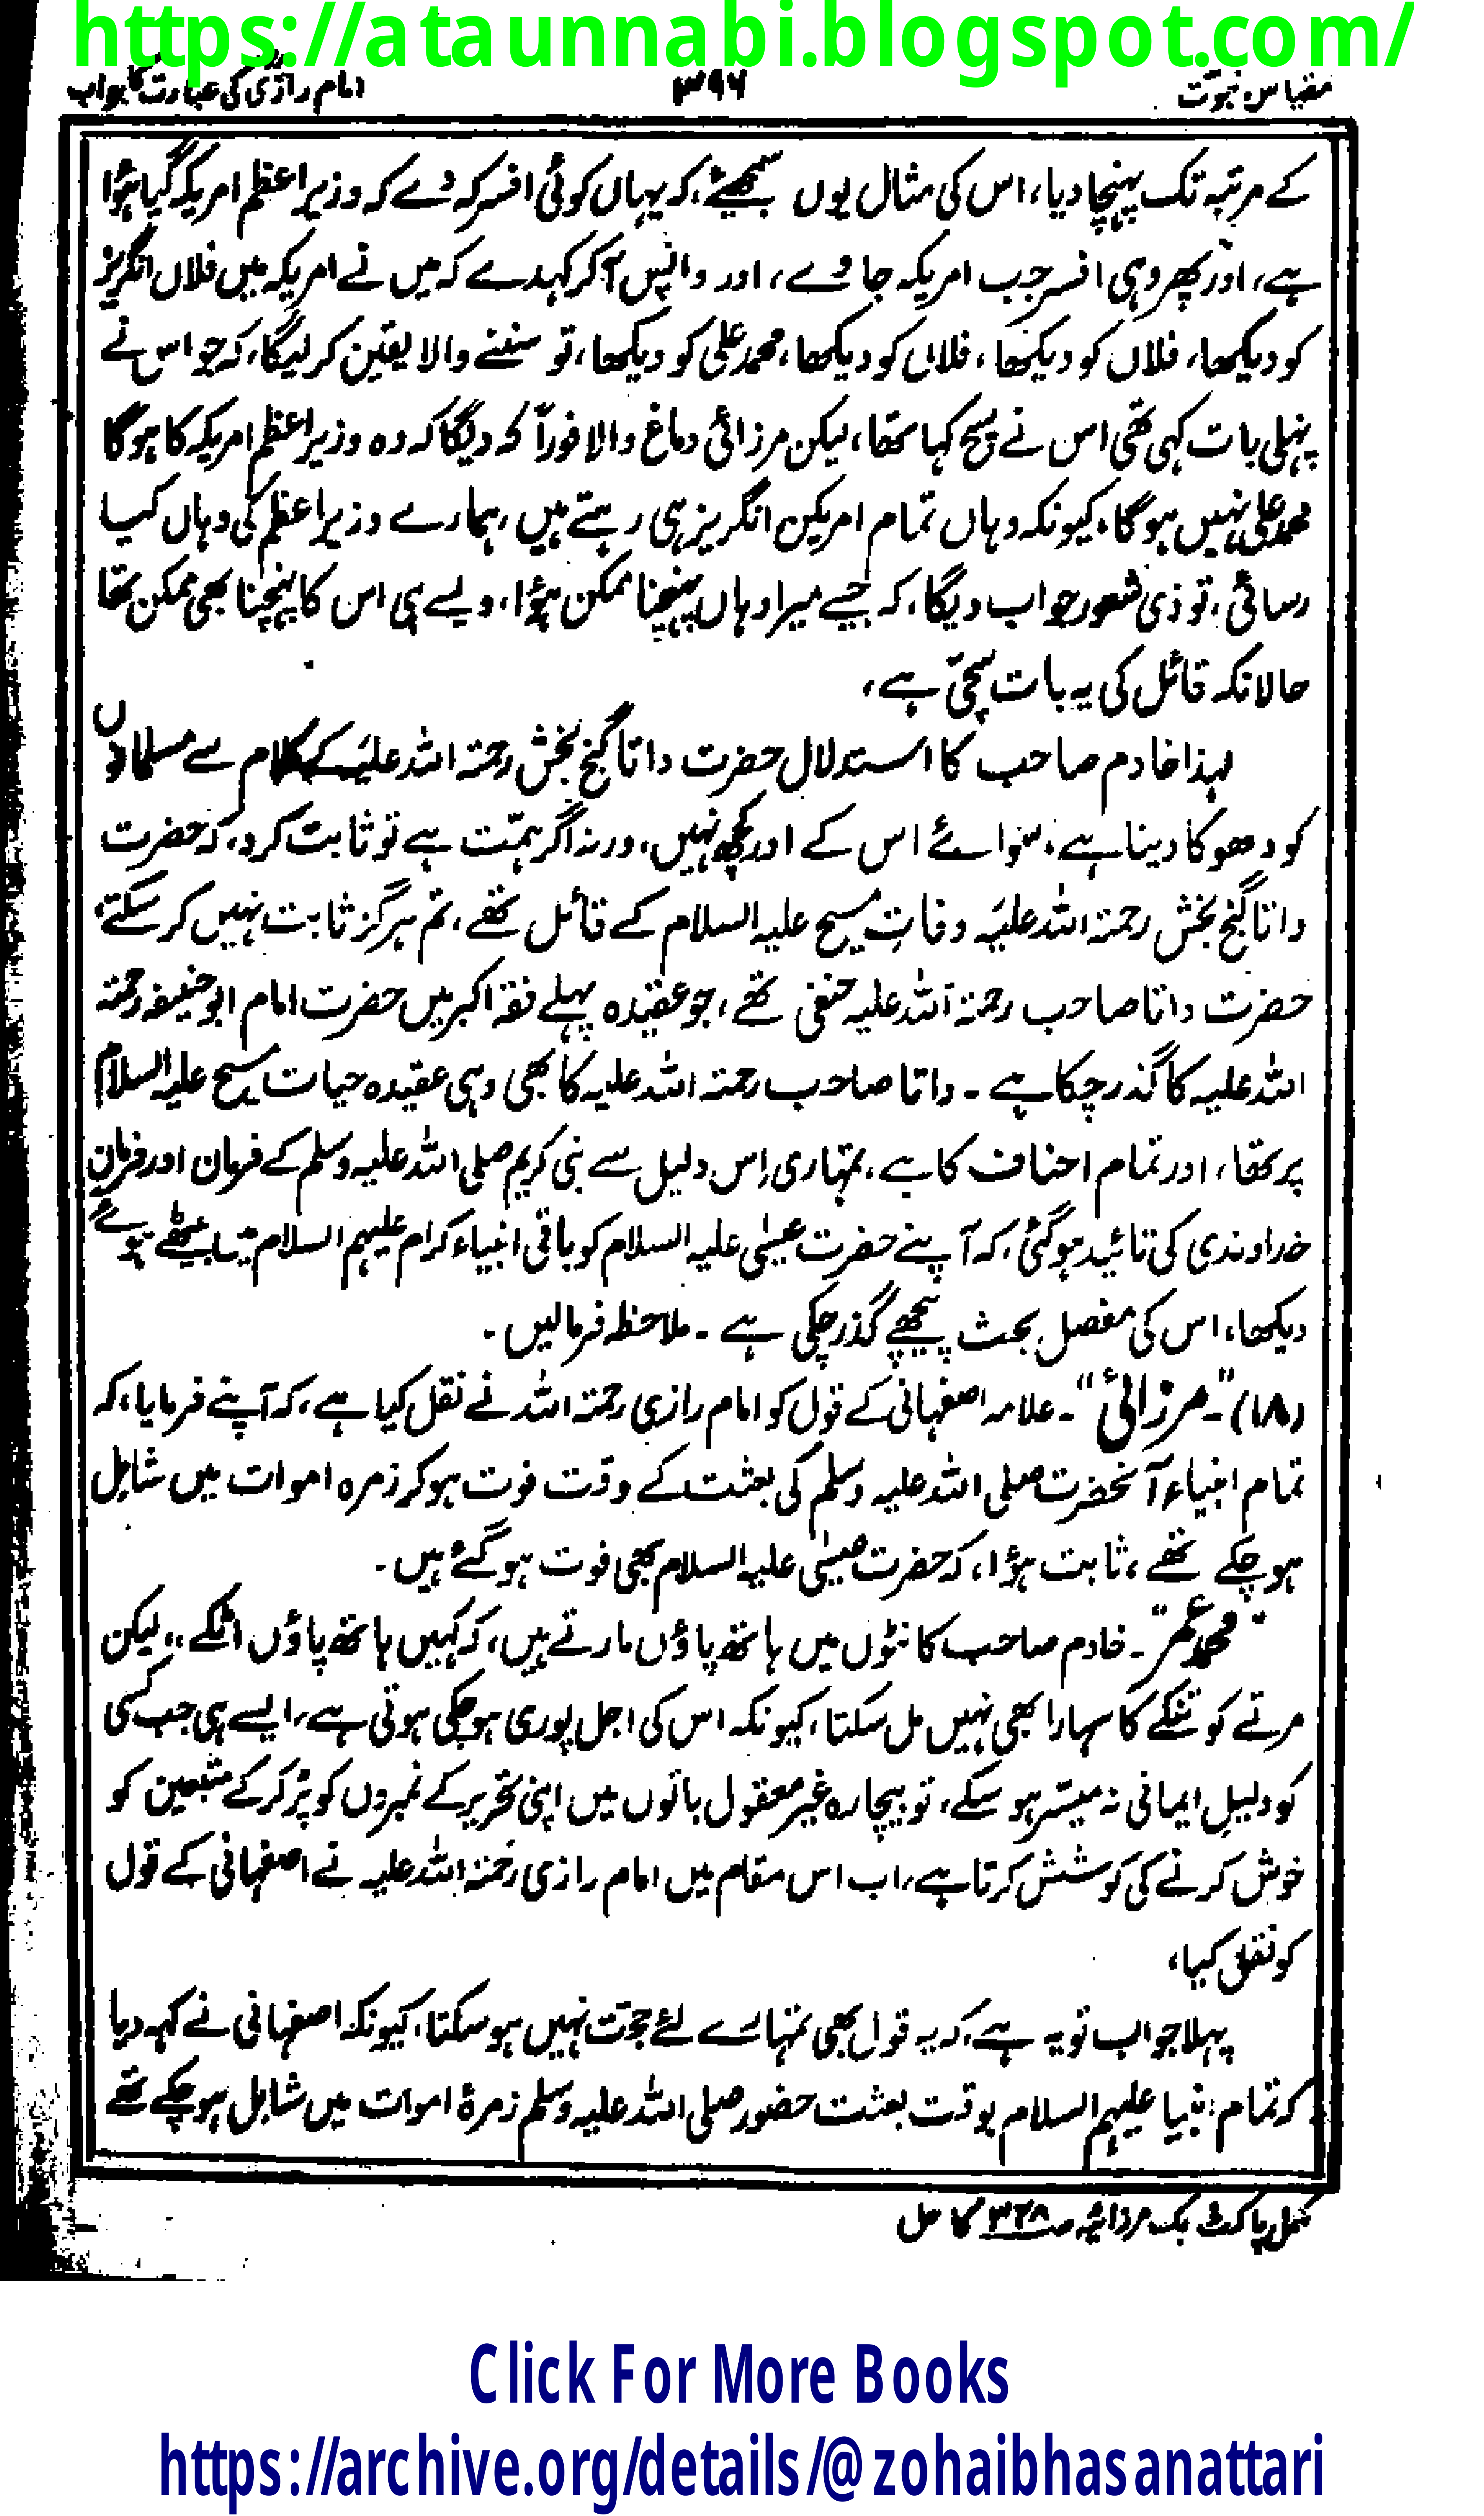 https://ataunnabi.blogspot.com/
مقیاس نبوت ۳۹۶ امام رازیؒ کی عبارت کا جواب
کے مرتبہ تک پہنچا دیا، اس کی مثال یوں سمجھئے، کہ یہاں کوئی افسر کہ دے کہ وزیر اعظم امریکہ گیا ہؤا
ہے، اور پھر وہی افسر جب امریکہ جاوے، اور واپس آ کر کہدے کہ میں نے امریکہ میں فلاں انگریز
کو دیکھا، فلاں کو دیکھا، فلاں کو دیکھا، محمد علی کو دیکھا، تو سننے والا یقین کر لیگا، کہ جو اس نے
پہلی بات کہی تھی اس نے سچ کہا تھا، لیکن مرزائی دماغ والا فوراً کہ دیگا کہ وہ وزیر اعظم امریکہ کا ہوگا
محمد علی نہیں ہوگا، کیونکہ وہاں تمام امریکن انگریز ہی رہتے ہیں، ہمارے وزیر اعظم کی وہاں کیا
رسائی، تو ذی شعور جواب دیگا، کہ جیسے میرا وہاں پہنچنا ممکن ہؤا، ویسے ہی اس کا پہنچنا بھی ممکن تھا
حالانکہ قائل کی یہ بات سچی ہے،
لہذا خادم صاحب کا استدلال حضرت داتا گنج بخش رحمۃ اللہ علیہ کے کلام سے مسلمانوں
کو دھوکا دینا ہے، سوائے اس کے اور کچھ نہیں، ورنہ اگر ہمّت ہے تو ثابت کرو، کہ حضرت
داتا گنج بخش رحمۃ اللہ علیہ وفاتِ مسیح علیہ السلام کے قائل تھے، تم ہرگز ثابت نہیں کر سکتے،
حضرت داتا صاحب رحمۃ اللہ علیہ حنفی تھے، جو عقیدہ پہلے فقہ اکبر میں حضرت امام ابو حنیفہ رحمۃ
اللہ علیہ کا گذر چکا ہے ۔ داتا صاحب رحمۃ اللہ علیہ کا بھی وہی عقیدہ حیات مسیح علیہ السلام
پر تھا، اور تمام احناف کا ہے، تمہاری اِس دلیل سے نبی کریم صلی اللہ علیہ وسلم کے فرمان اور فرمانِ
خداوندی کی تائید ہو گئی، کہ آپنے حضرت عیسیٰ علیہ السلام کو باقی انبیاء کرام علیہم السلام میں بیٹھے ہوئے
دیکھا، اس کی مفصل بحث پیچھے گذر چکی ہے ۔ ملاحظہ فرمالیں ۔
(۱۸) ۔ "مرزائی" ۔ علامہ اصفہانی کے قول کو امام رازی رحمۃ اللہ نے نقل کیا ہے، کہ آپنے فرمایا، کہ
تمام انبیاء آنحضرت صلی اللہ علیہ وسلم کی بعثت کے وقت فوت ہو کر زمرہ اموات میں شامل
ہو چکے تھے، ثابت ہؤا، کہ حضرت عیسیٰ علیہ السلام بھی فوت ہو گئے ہیں ۔
"محمد عمر" ۔ خادم صاحب کانٹوں میں ہاتھ پاؤں مارتے ہیں، کہ کہیں ہاتھ پاؤں اٹکے ،، لیکن
مرتے کو تنکے کا سہارا بھی نہیں مل سکتا، کیونکہ اس کی اجل پوری ہو چکی ہوتی ہے، ایسے ہی جب کسی
کو دلیل ایمانی نہ میسّر ہو سکے، تو بیچارہ غیر معقول باتوں میں اپنی تحریر کے نمبروں کو پُر کر کے متبعین کو
خوش کرنے کی کوشش کرتا ہے، اب اس مقام میں امام رازی رحمۃ اللہ علیہ نے اصفہانی کے قول
کو نقل کیا،
پہلا جواب تو یہ ہے، کہ یہ قول بھی تمہارے لئے حجت نہیں ہو سکتا، کیونکہ اصفہانی نے کہہ دیا
کہ تمام انبیا علیہم السلام بوقت بعثت حضور صلی اللہ علیہ وسلم زمرۂ اموات میں شامل ہو چکے تھے
مکمل پاکٹ بک مرزائیہ ص۳۳۸ کا حل
Click For More Books
https://archive.org/details/@zohaibhasanattari